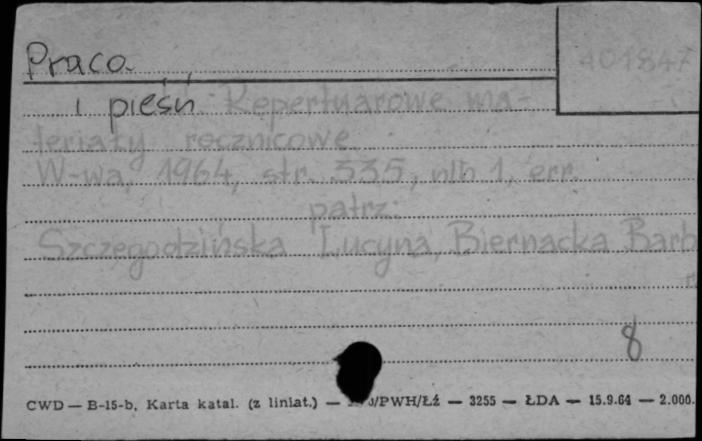 Praca 401847
i pieśń. Repertuarowe ma-
teriały rocznicowe.
W-wa, 1964, str. 335, nlb 1, err.
patrz:
Szczegodzińska Lucyna, Biernacka Barb
8
CWD — B-15-b, Karta katal. (z liniat.) — /PWH/Łź — 3255 — ŁDA — 15.9.64 — 2.000.